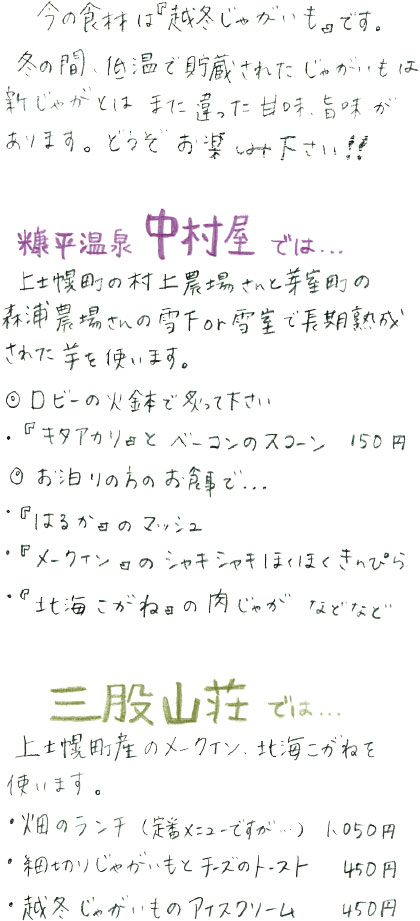 今の食材は『越冬じゃがいも』です。
冬の間、低温で貯蔵されたじゃがいもは
新じゃがとはまた違った甘味、旨味が
あります。どうぞお楽しみ下さい!!
糠平温泉 中村屋 では…
上士幌町の村上農場さんと芽室町の
森浦農場さんの雪下or雪室で長期熟成
された芋を使います。
◎ロビーの火鉢で炙って下さい
・『キタアカリ』とベーコンのスコーン 150円
◎お泊りの方のお食事で…
・『はるか』のマッシュ
・『メークイン』のシャキシャキほくほくきんぴら
・『北海こがね』の肉じゃが などなど
三股山荘 では…
上士幌町産のメークイン、北海こがねを
使います。
・畑のランチ (定番メニューですが…) 1,050円
・細切りじゃがいもとチーズのトースト 450円
・越冬じゃがいものアイスクリーム 450円